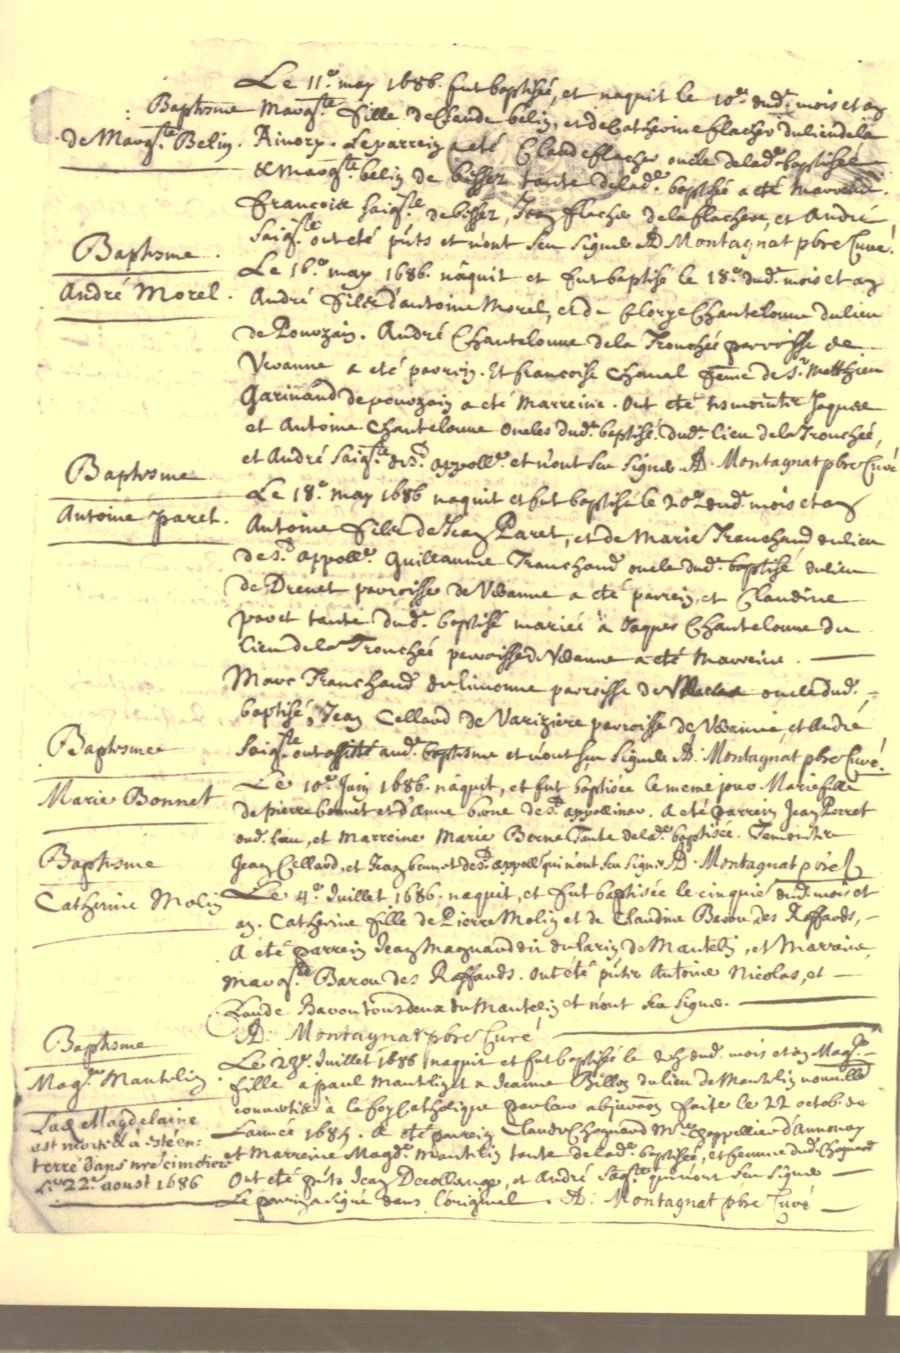 Le 11e may 1686. fut baptisée, et naquit le 10e dud. mois et an
Baptosme
de Margte Belin.
Margte fille de Claude belin, et de Catherine flacher du lieu de la
Rivory. Le parrein a eté Claude flacher oncle de lad. baptisée
& Margte belin de bisser tante de lad. baptisé a eté marreine.
francois saigle de bisser, Jean flacher de la flachere, et André
saigle ont eté pnts et n'ont seu signer. A. Montagnat pbre Curé.
Baptosme
André Morel.
Le 16e may 1686. nâquit et fut baptisé le 18e dud. mois et an
André fils d'antoine Morel, et de Clorye Chantelonne du lieu
de Pouzain. André Chantelonne de la Tronchée parroisse de
Veranne a eté parrein. Et francoise Chaval feme de Sr. Matthieu
Garinaud de pouzain a eté Marreine. Ont eté tesmoints Jaques
et Antoine Chantelonne oncles dud. baptisé dud. lieu de la Tronchée,
et André saigle de St. appolle. et n'ont seu signer A. Montagnat pbre Curé
Baptosme
Antoine paret.
Le 18e may 1686 naquit et fut baptisé le 20e dud. mois et an
Antoine fils de Jean Paret, et de Marie Tranchand du lieu
de St. appolle. Guillaume Tranchand oncle dud. baptisé du lieu
de Drenet parroisse de Veranne a eté parrein, et Claudine
paret tante dud. baptisé mariée à Jaques Chantelonne du
lieu de la Tronchée parroisse de Veranne a eté Marreine.
Marc Tranchand du limonne parroisse de oncle dud.
baptisé, Jean Cellard de Varizière parroisse de Veranne, et André
saigle ont assisté aud. baptosme et n'ont seu signer A. Montagnat pbre Curé.
Baptosme
Marie Bonnet
Le 10e Juin 1686. nâquit, et fut baptisée le meme jour Marie fille
de pierre bonnet et d'Anne borne de St. appolinar. a eté parrein Jean Perret
dud. lieu, et Marreine Marie Borne Tante de lad. baptisée. Temointz
Jean Cellard, et Jean bonnet de St. appoll. qui n'ont seu signer A. Montagnat pbre
Baptosme
Catherine Molin
Le 4e Juillet 1686. naquit, et fut baptisée le cinquie. dud. mois et
an. Catherine fille de Pierre Molin et de Claudine Barou des Raffards,
A eté parrein Jean Magnard dit du larin de Mantelin, et Marreine,
Margte Barou des Raffards. Ont eté pnts Antoine Nicolas, et
Claude Barou tous deux du Mantelin et n'ont seu signer.
A. Montagnat pbre Curé
Baptosme
Magne Mantelin
Lad. Magdelaine
est morte & à esté en=
terré dans nre cimetiere
le 22e aoust 1686
Le 23e Juillet 1686 naquit et fut baptisée le dud. mois et an Magne
fille a paul Mantelin et a Jeanne Billon du lieu de Mantelin nouvelle
convertis à la foy Catholique par leur abjuraon faite le 22 octob. de
L'année 1685. a eté parrein Claude Chomard Me Chappellier d'Annonay
et Marreine Magd. Mantelin tante de lad. baptisée, et femme dud. Chomard
Ont eté pnts Jean Decollange, et André Saigle qui n'ont seu signer
Le parrein a signé dans l'original. A. Montagnat pbre Curé